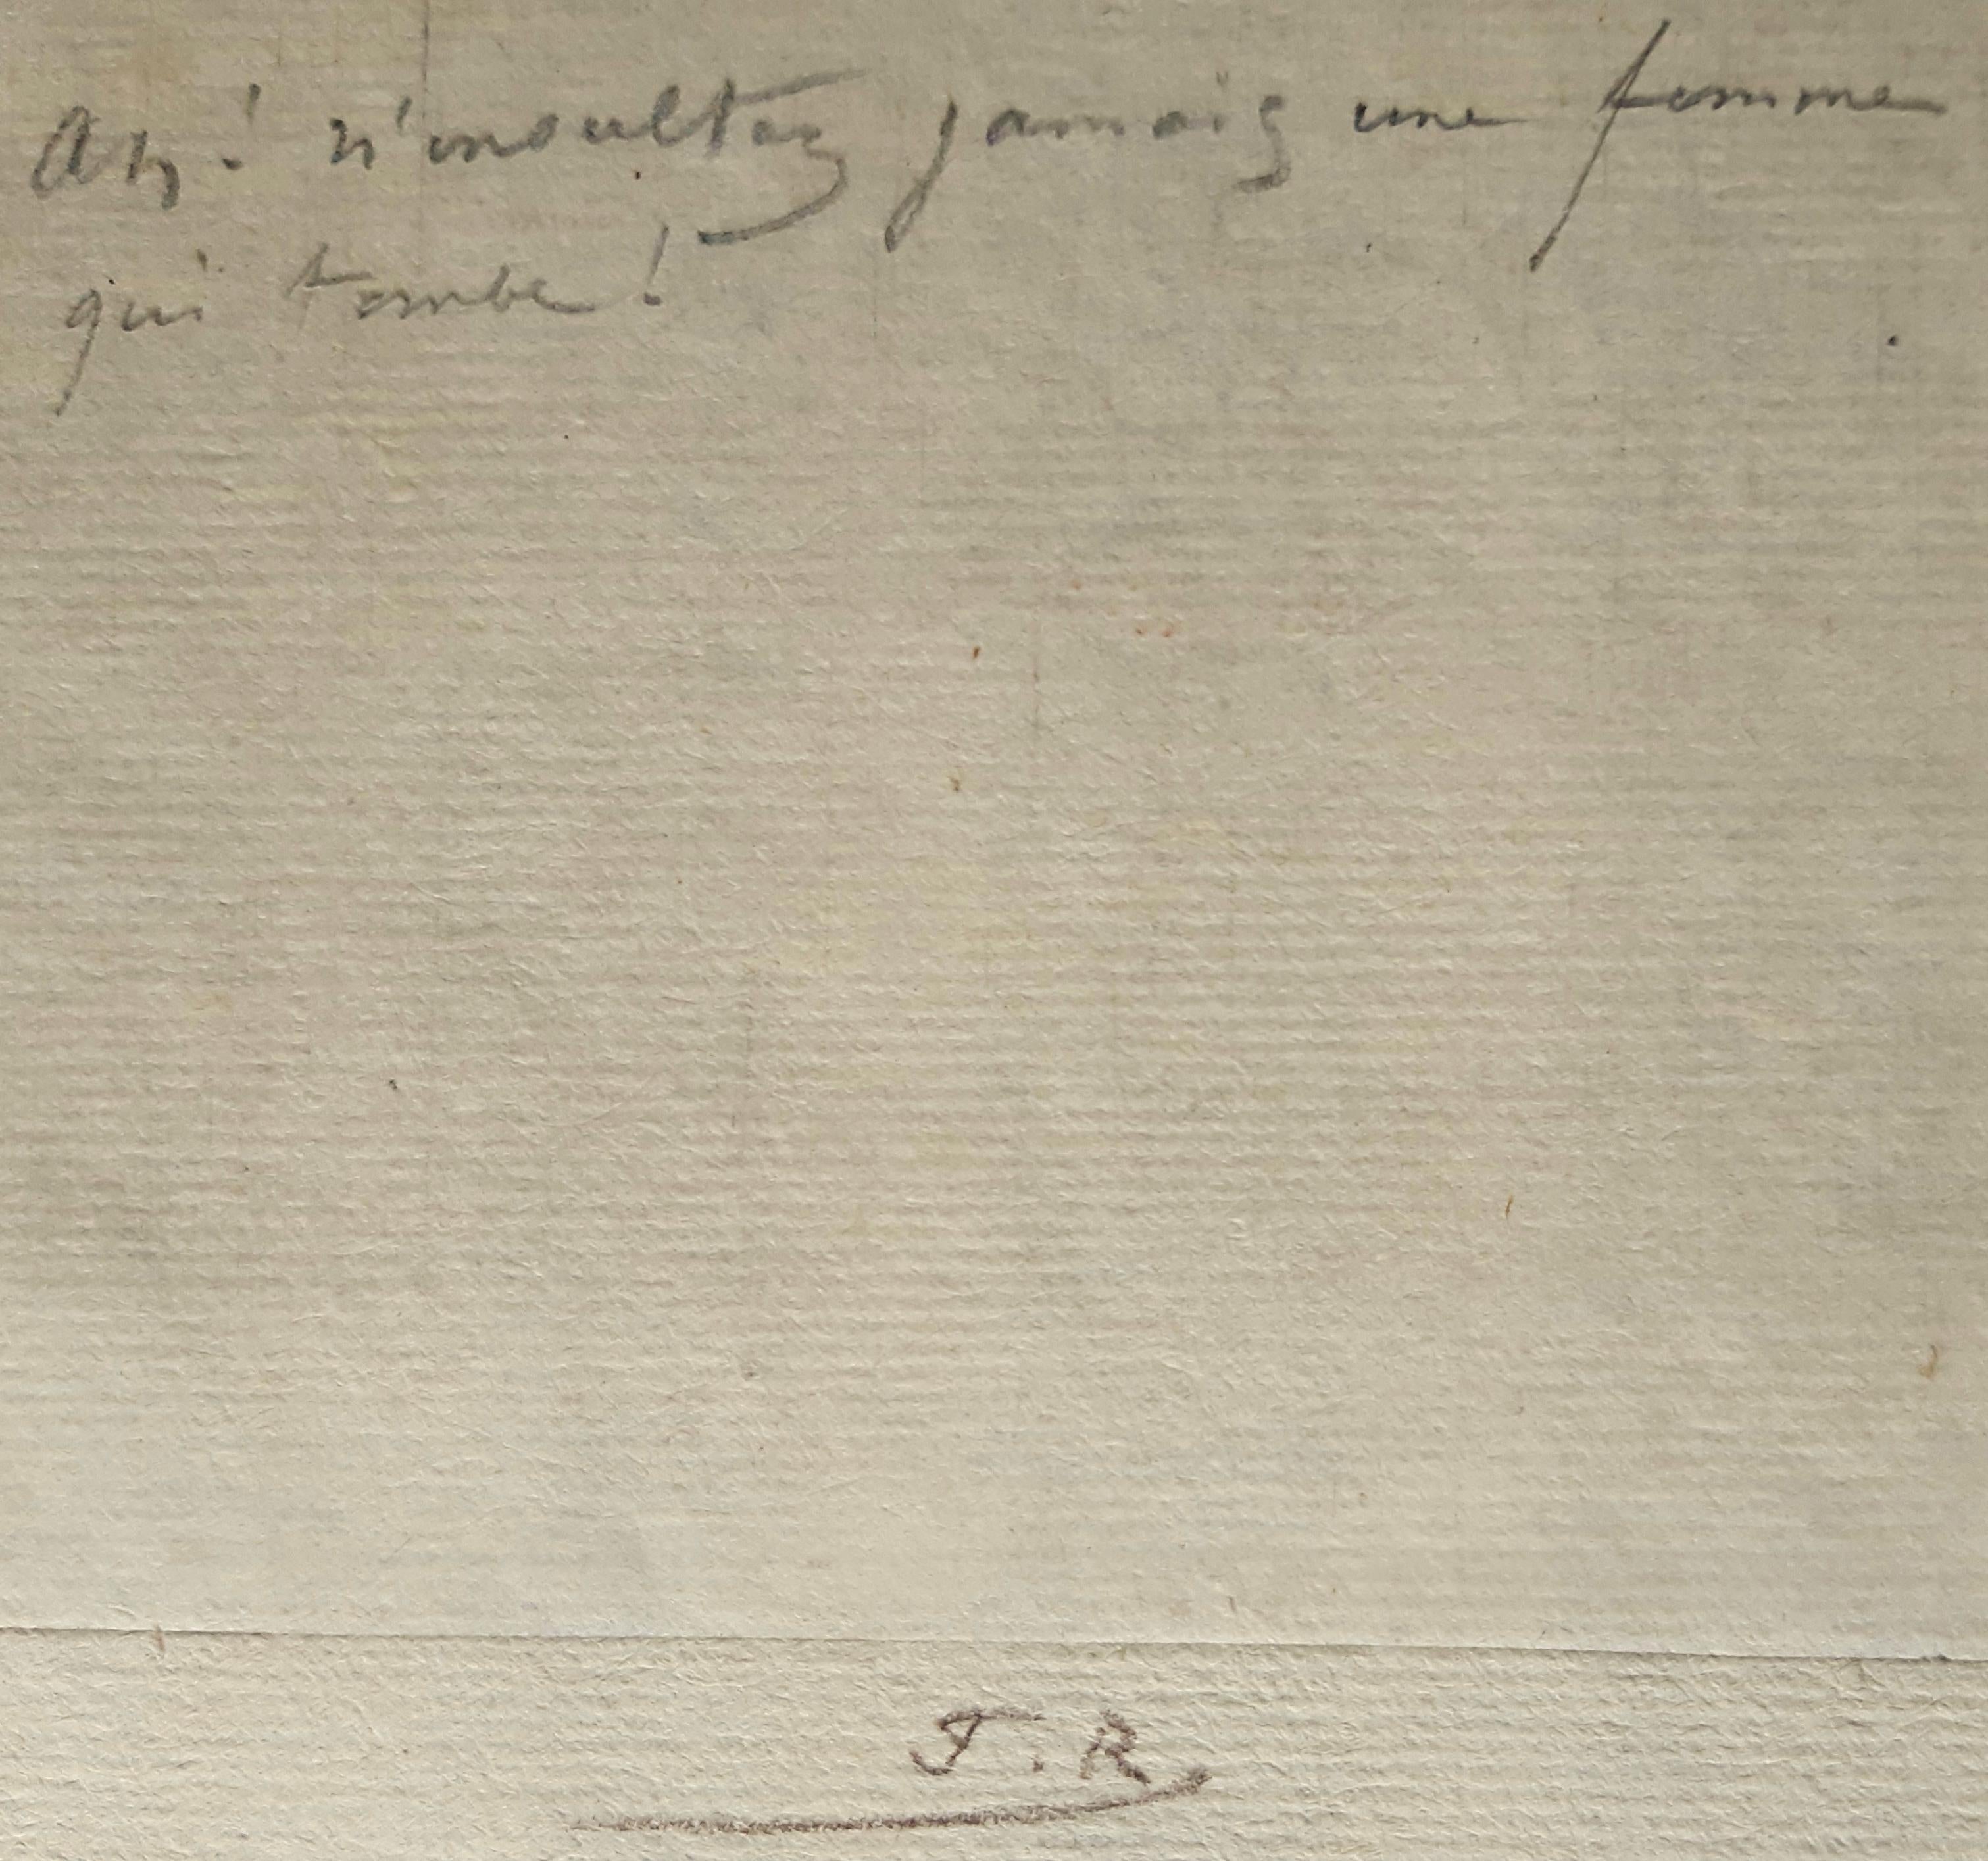 Ah ! n'insultez jamais une femme
qui tombe !
T. R